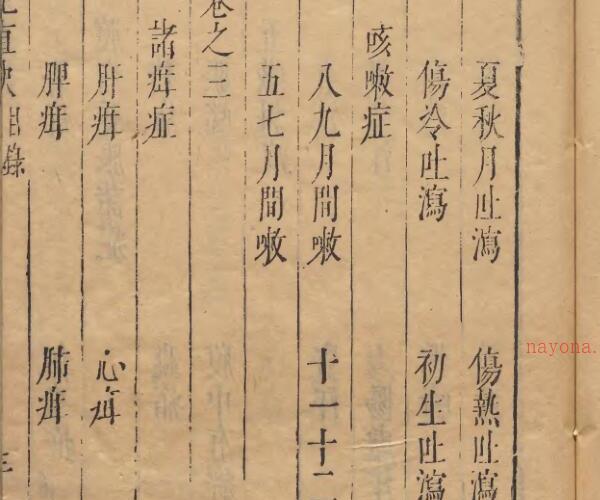 夏秋月吐瀉　傷熱吐瀉
傷冷吐瀉　初生吐瀉
咳嗽症
八九月間嗽　十一十二
五七月間嗽
卷之三
諸疳症
肝疳　心疳
脾疳　肺疳
nayona.